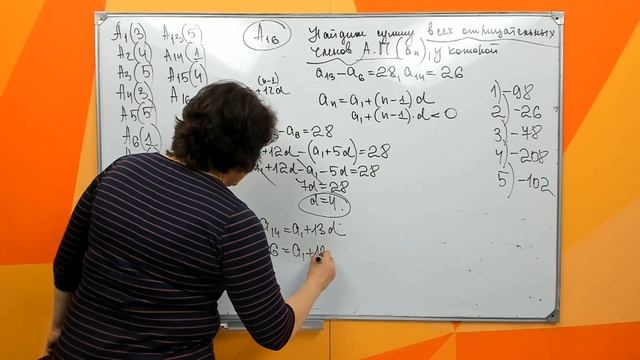 A1(3)
A2(4)
A3(5)
A4(3)
A5(5)
A6(1)
A13(5)
A14(1)
A15(4)
A16
A16
Найдите сумму всех отрицательных
членов А.П (an), у которой
a13-a6=28, a14=26
an=a1+(n-1)d
a1+(n-1)·d<0
(n-1)
+12d
=28
+12d-(a1+5d)=28
+12d-a1-5d=28
7d=28
d=4
a14=a1+13d
6=a1+13
1)-98
2)-26
3)-78
4)-208
5)-102